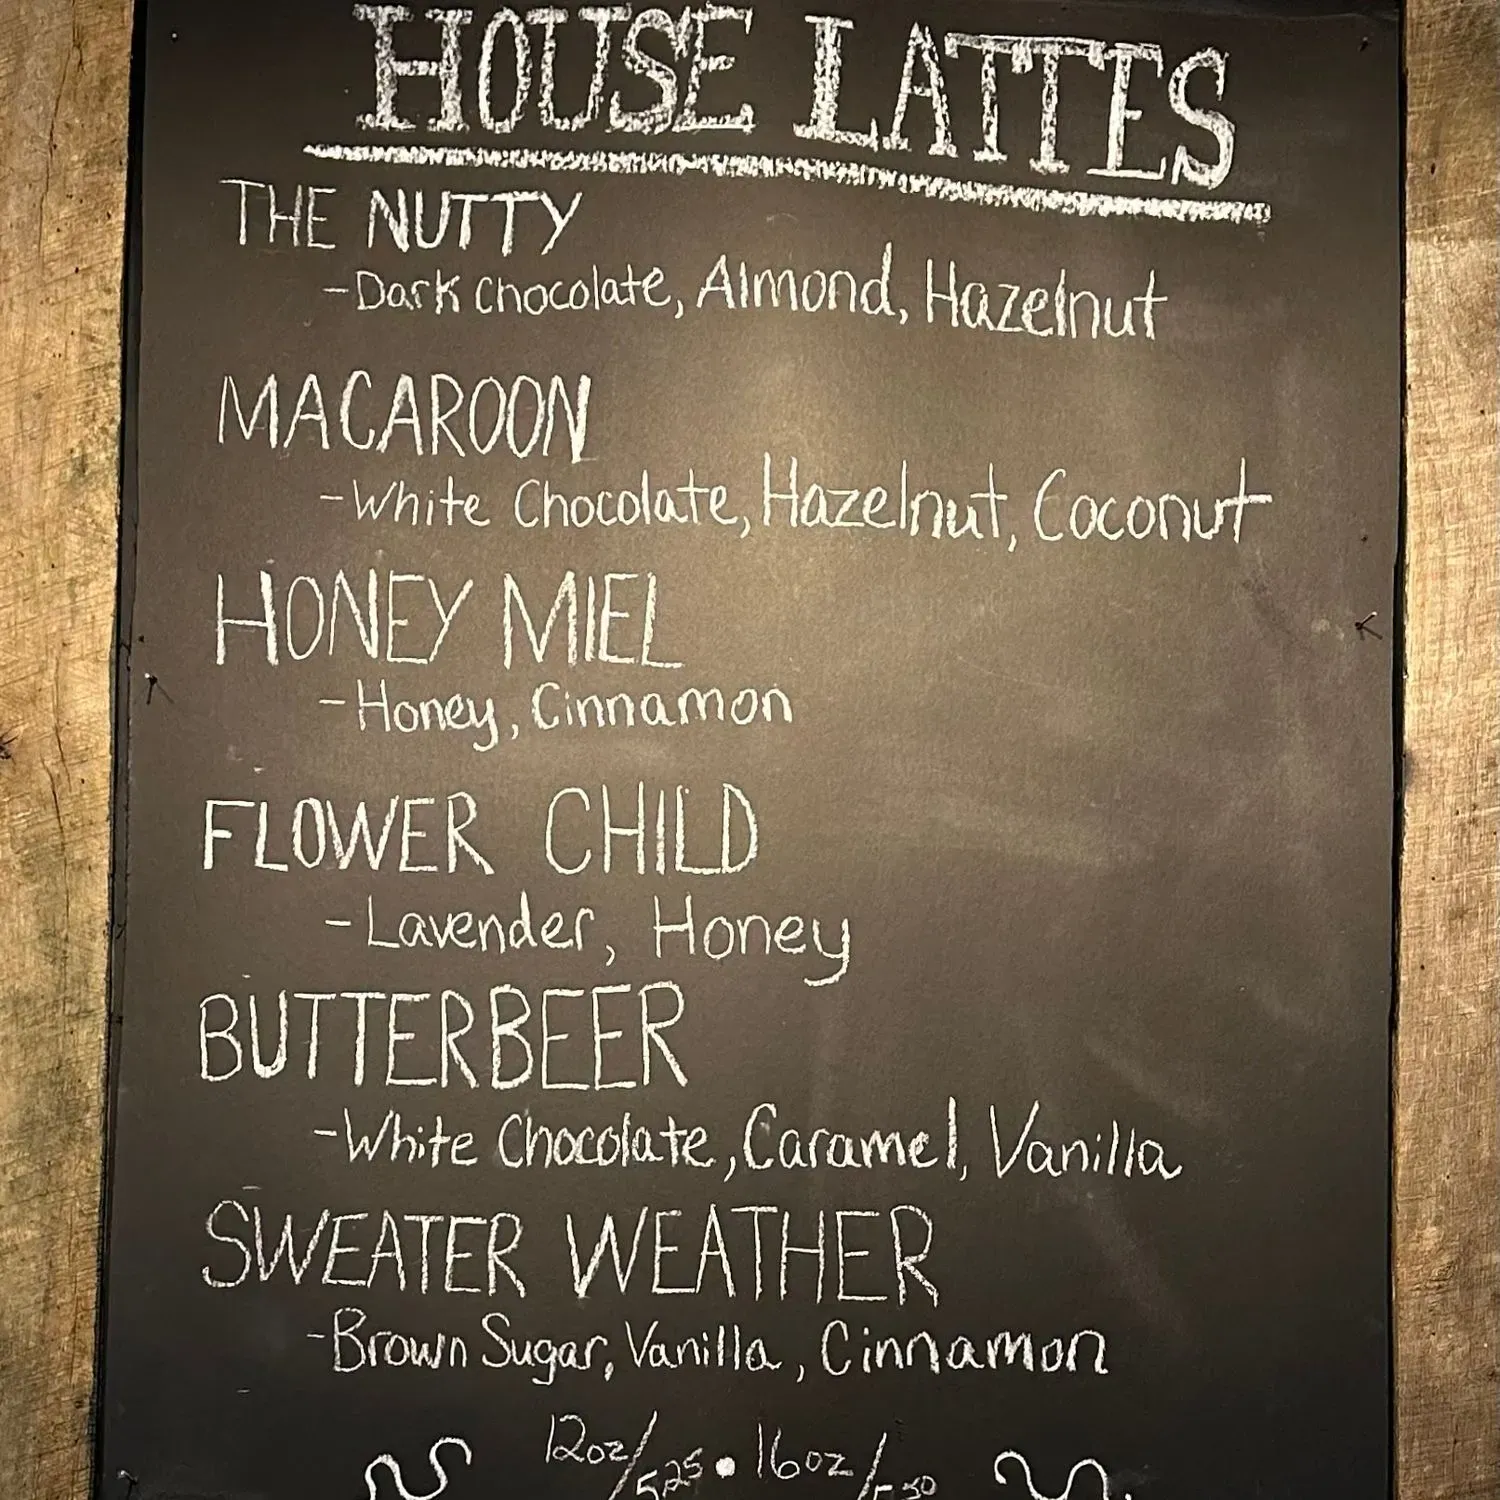 HOUSE LATTES
THE NUTTY
-Dark Chocolate, Almond, Hazelnut
MACAROON
-White Chocolate, Hazelnut, Coconut
HONEY MIEL
-Honey, Cinnamon
FLOWER CHILD
-Lavender, Honey
BUTTERBEER
-White Chocolate, Caramel, Vanilla
SWEATER WEATHER
-Brown Sugar, Vanilla, Cinnamon
12oz/5.25 • 16oz/5.50